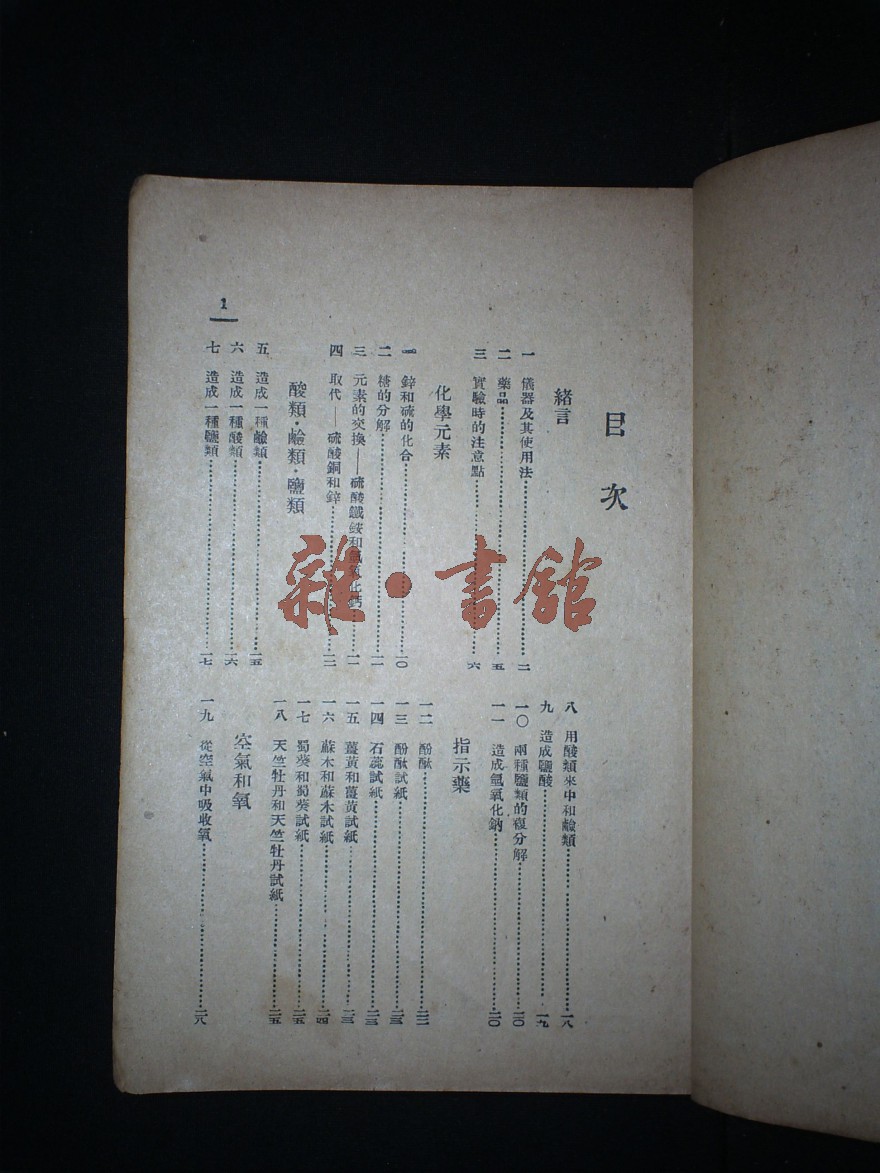 目次
緒言
一 儀器及其使用法 二
二 藥品 五
三 實驗時的注意點 六
化學元素
一 鋅和硫的化合 一〇
二 糖的分解 一一
三 元素的交換——硫酸鐵銨和氫氧化鈣 一一
四 取代——硫酸銅和鋅 一二
酸類·鹼類·鹽類
五 造成一種鹼類 一五
六 造成一種酸類 一六
七 造成一種鹽類 一七
八 用酸類來中和鹼類 一八
九 造成鹽酸 一九
一〇 兩種鹽類的複分解 二〇
一一 造成氫氧化鈉 二〇
指示藥
一二 酚酞 二二
一三 酚酞試紙 二三
一四 石蕊試紙 二三
一五 薑黃和薑黃試紙 二三
一六 蘇木和蘇木試紙 二四
一七 蜀葵和蜀葵試紙 二五
一八 天竺牡丹和天竺牡丹試紙 二五
空氣和氧
一九 從空氣中吸收氧 二八
1
雜·書館